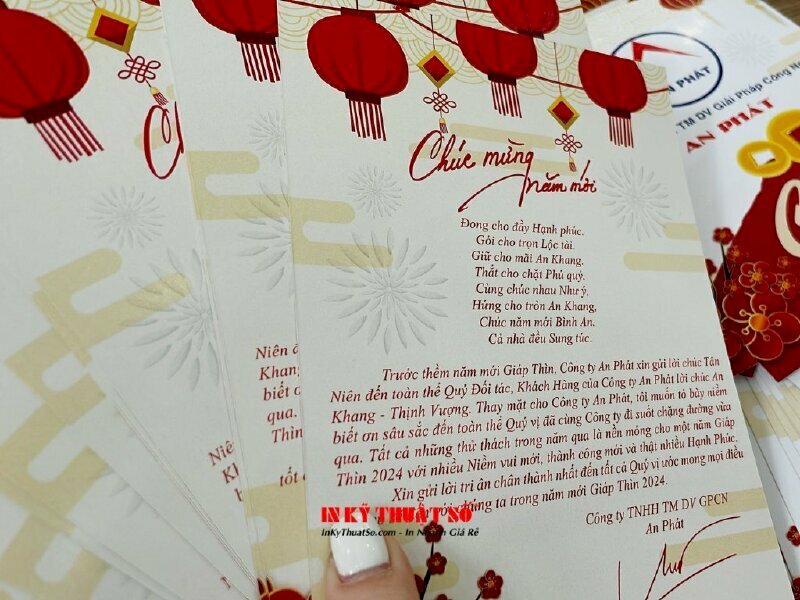 Chúc mừng
năm mới
Đong cho đầy Hạnh phúc.
Gói cho trọn Lộc tài.
Giữ cho mãi An Khang.
Thắt cho chặt Phú quý.
Cùng chúc nhau Như ý,
Hứng cho tròn An Khang,
Chúc năm mới Bình An.
Cả nhà đều Sung túc.
Trước thềm năm mới Giáp Thìn, Công ty An Phát xin gửi lời chúc Tân
Niên đến toàn thể Quý Đối tác, Khách Hàng của Công ty An Phát lời chúc An
Khang - Thịnh Vượng. Thay mặt cho Công ty An Phát, tôi muốn tỏ bày niềm
biết ơn sâu sắc đến toàn thể Quý vị đã cùng Công ty đi suốt chặng đường vừa
qua. Tất cả những thử thách trong năm qua là nền móng cho một năm Giáp
Thìn 2024 với nhiều Niềm vui mới, thành công mới và thật nhiều Hạnh Phúc.
Xin gửi lời tri ân chân thành nhất đến tất cả Quý vị ước mong mọi điều
ta trong năm mới Giáp Thìn 2024.
Công ty TNHH TM DV GPCN
An Phát
IN KỸ THUẬT SỐ
InKyThuatSo.com - In Nhanh Giá Rẻ
Niên đ
Khang
biết ơ
qua.
Thìn
Niê
Kha
biế
qua
tốt
AN PHÁT
TM DV Giải Pháp Công
AN PHÁT